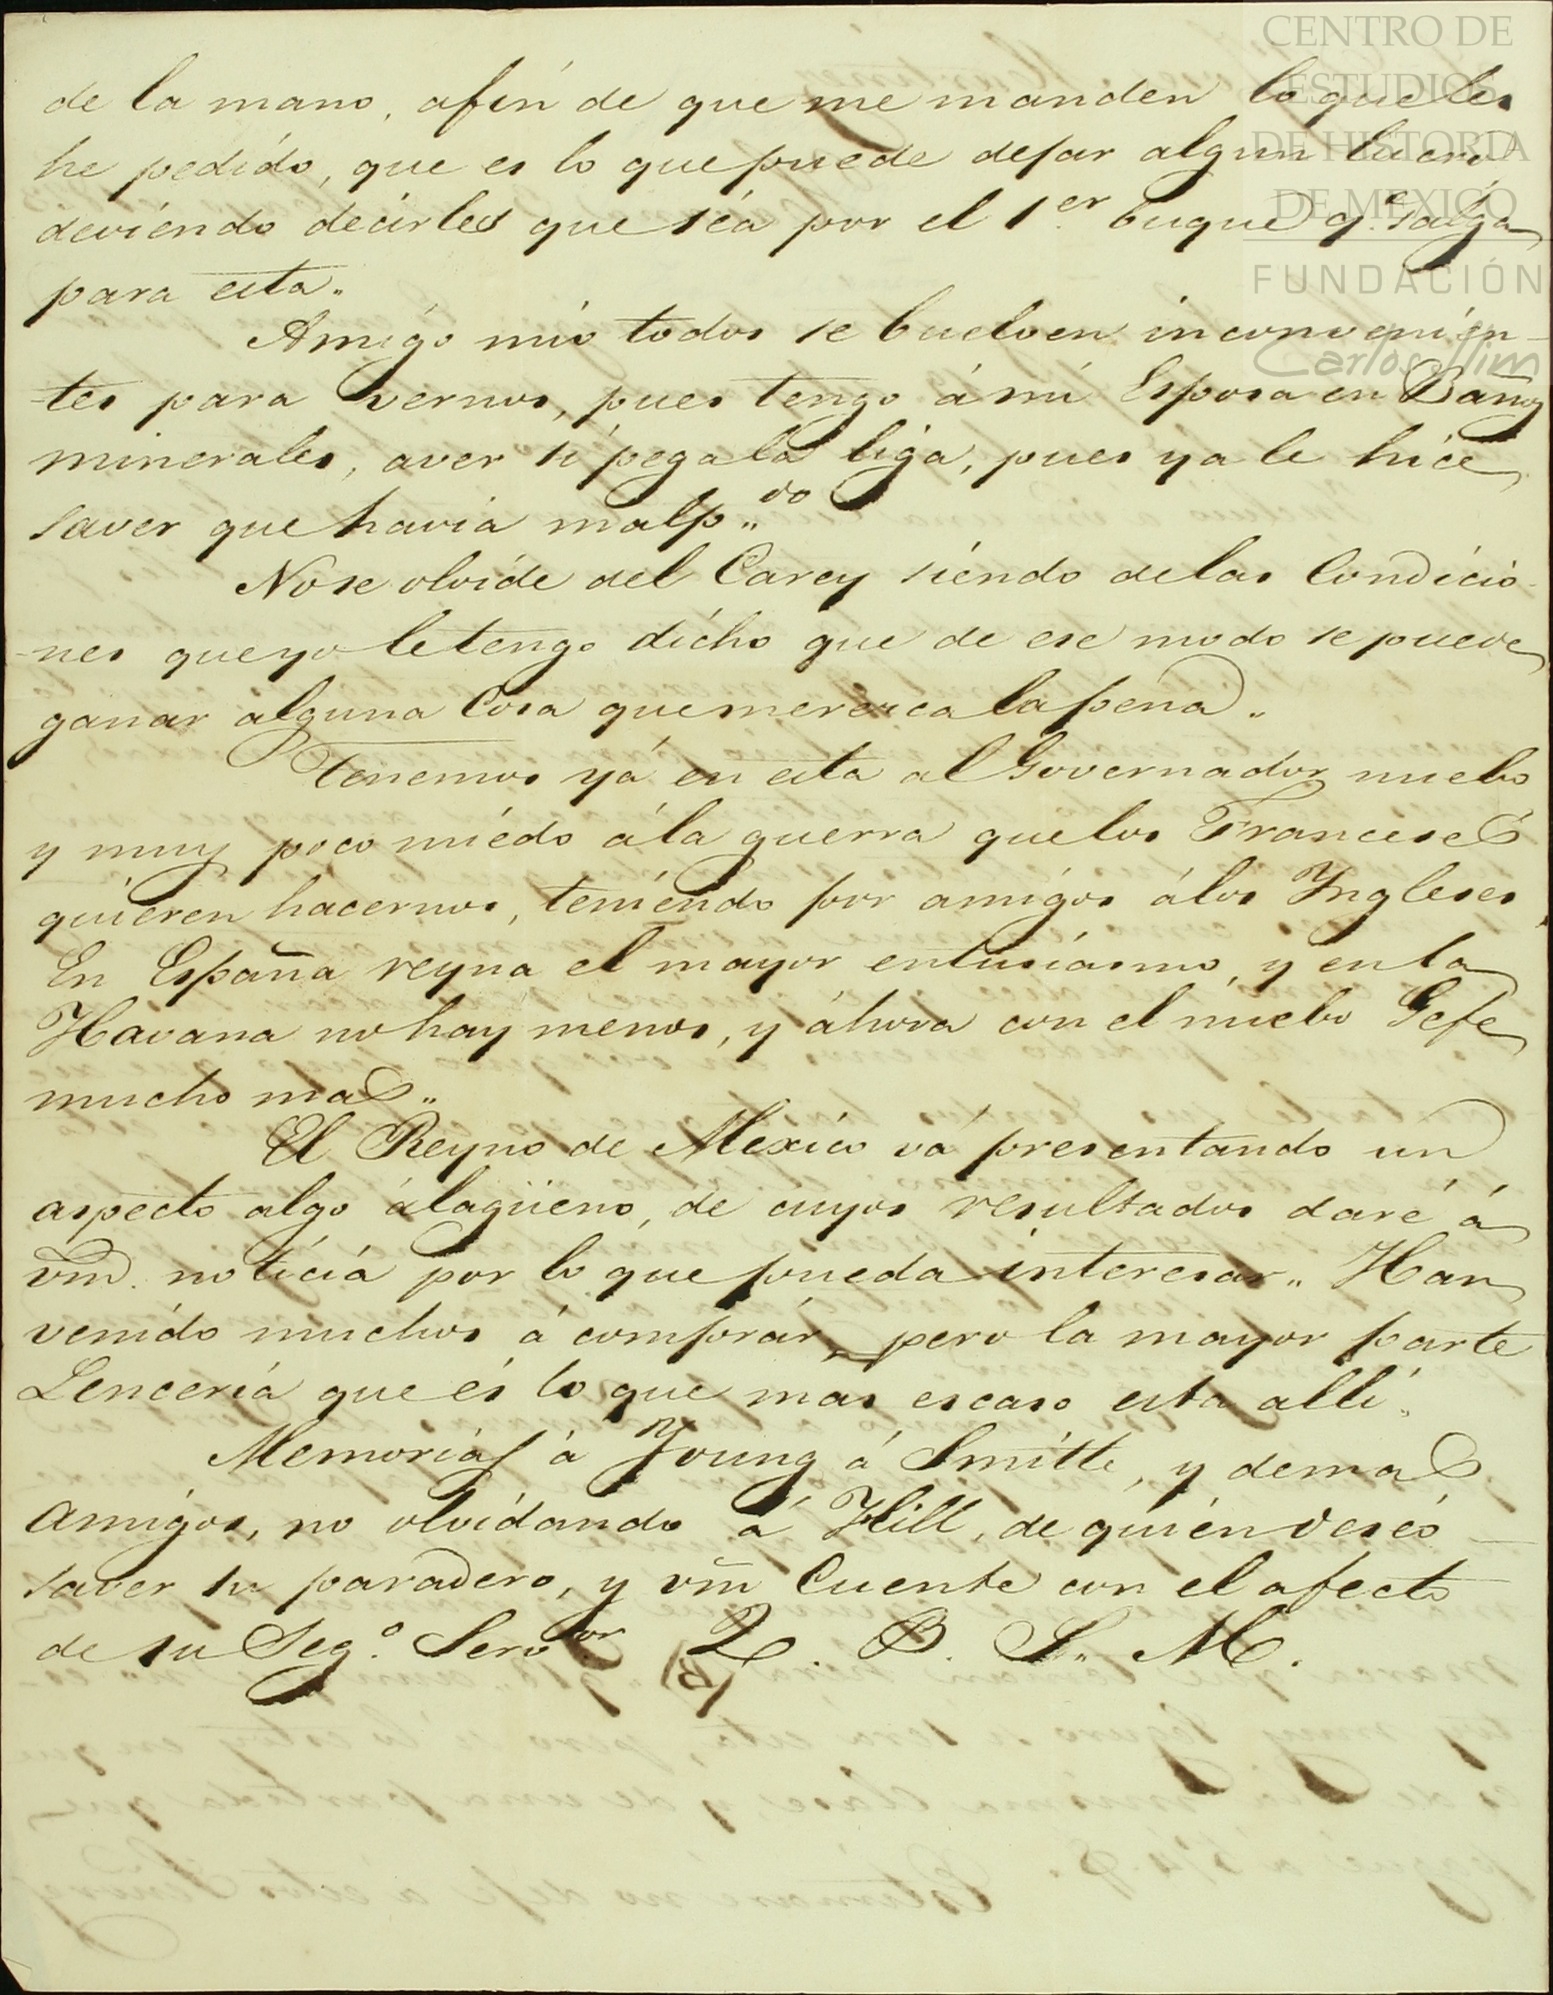 de la mano, afin de que me manden lo que les
he pedido, que es lo que puede dejar algun lucro
deviendo decirles que séa por el 1.er buque q.e salga
para esta.
Amigo mio todos se buelven inconvenien-
-tes para vernos, pues tengo á mi Esposa en Baños
minerales, aver si pega la liga, pues ya le hice
saver que havia malp.do
No se olvide del Carey siendo delas Condicio-
-nes que yo le tengo dicho que de ese modo se puede
ganar alguna Cosa que merezca la pena.
Tenemos yá en esta al Governador nuebo
y muy poco miedo á la guerra que los Franceses
quieren hacernos, teniendo por amigos á los Yngleses.
En España reyna el mayor entusiasmo, y en la
Havana no hay menos, y áhora con el nuebo Gefe
mucho mas.
El Reyno de Mexico vá presentando un
aspecto algo álagüeno, de cuyos resultados daré á
vmd. noticiá por lo que pueda interesar. Han
venido muchos á comprár, pero la mayor parte
Lenceriá que és lo que mas escaso esta alli.
Memorias á Young á Smith, y demas
Amigos, no olvidando á Hill, de quién deséo
saver su paradero, y vm Cuente con el afecto
de su Seg.o Serv.or Q. B. S. M.
(B)
CENTRO DE
ESTUDIOS
DE HISTORIA
DE MEXICO
FUNDACIÓN
Carlos Slim